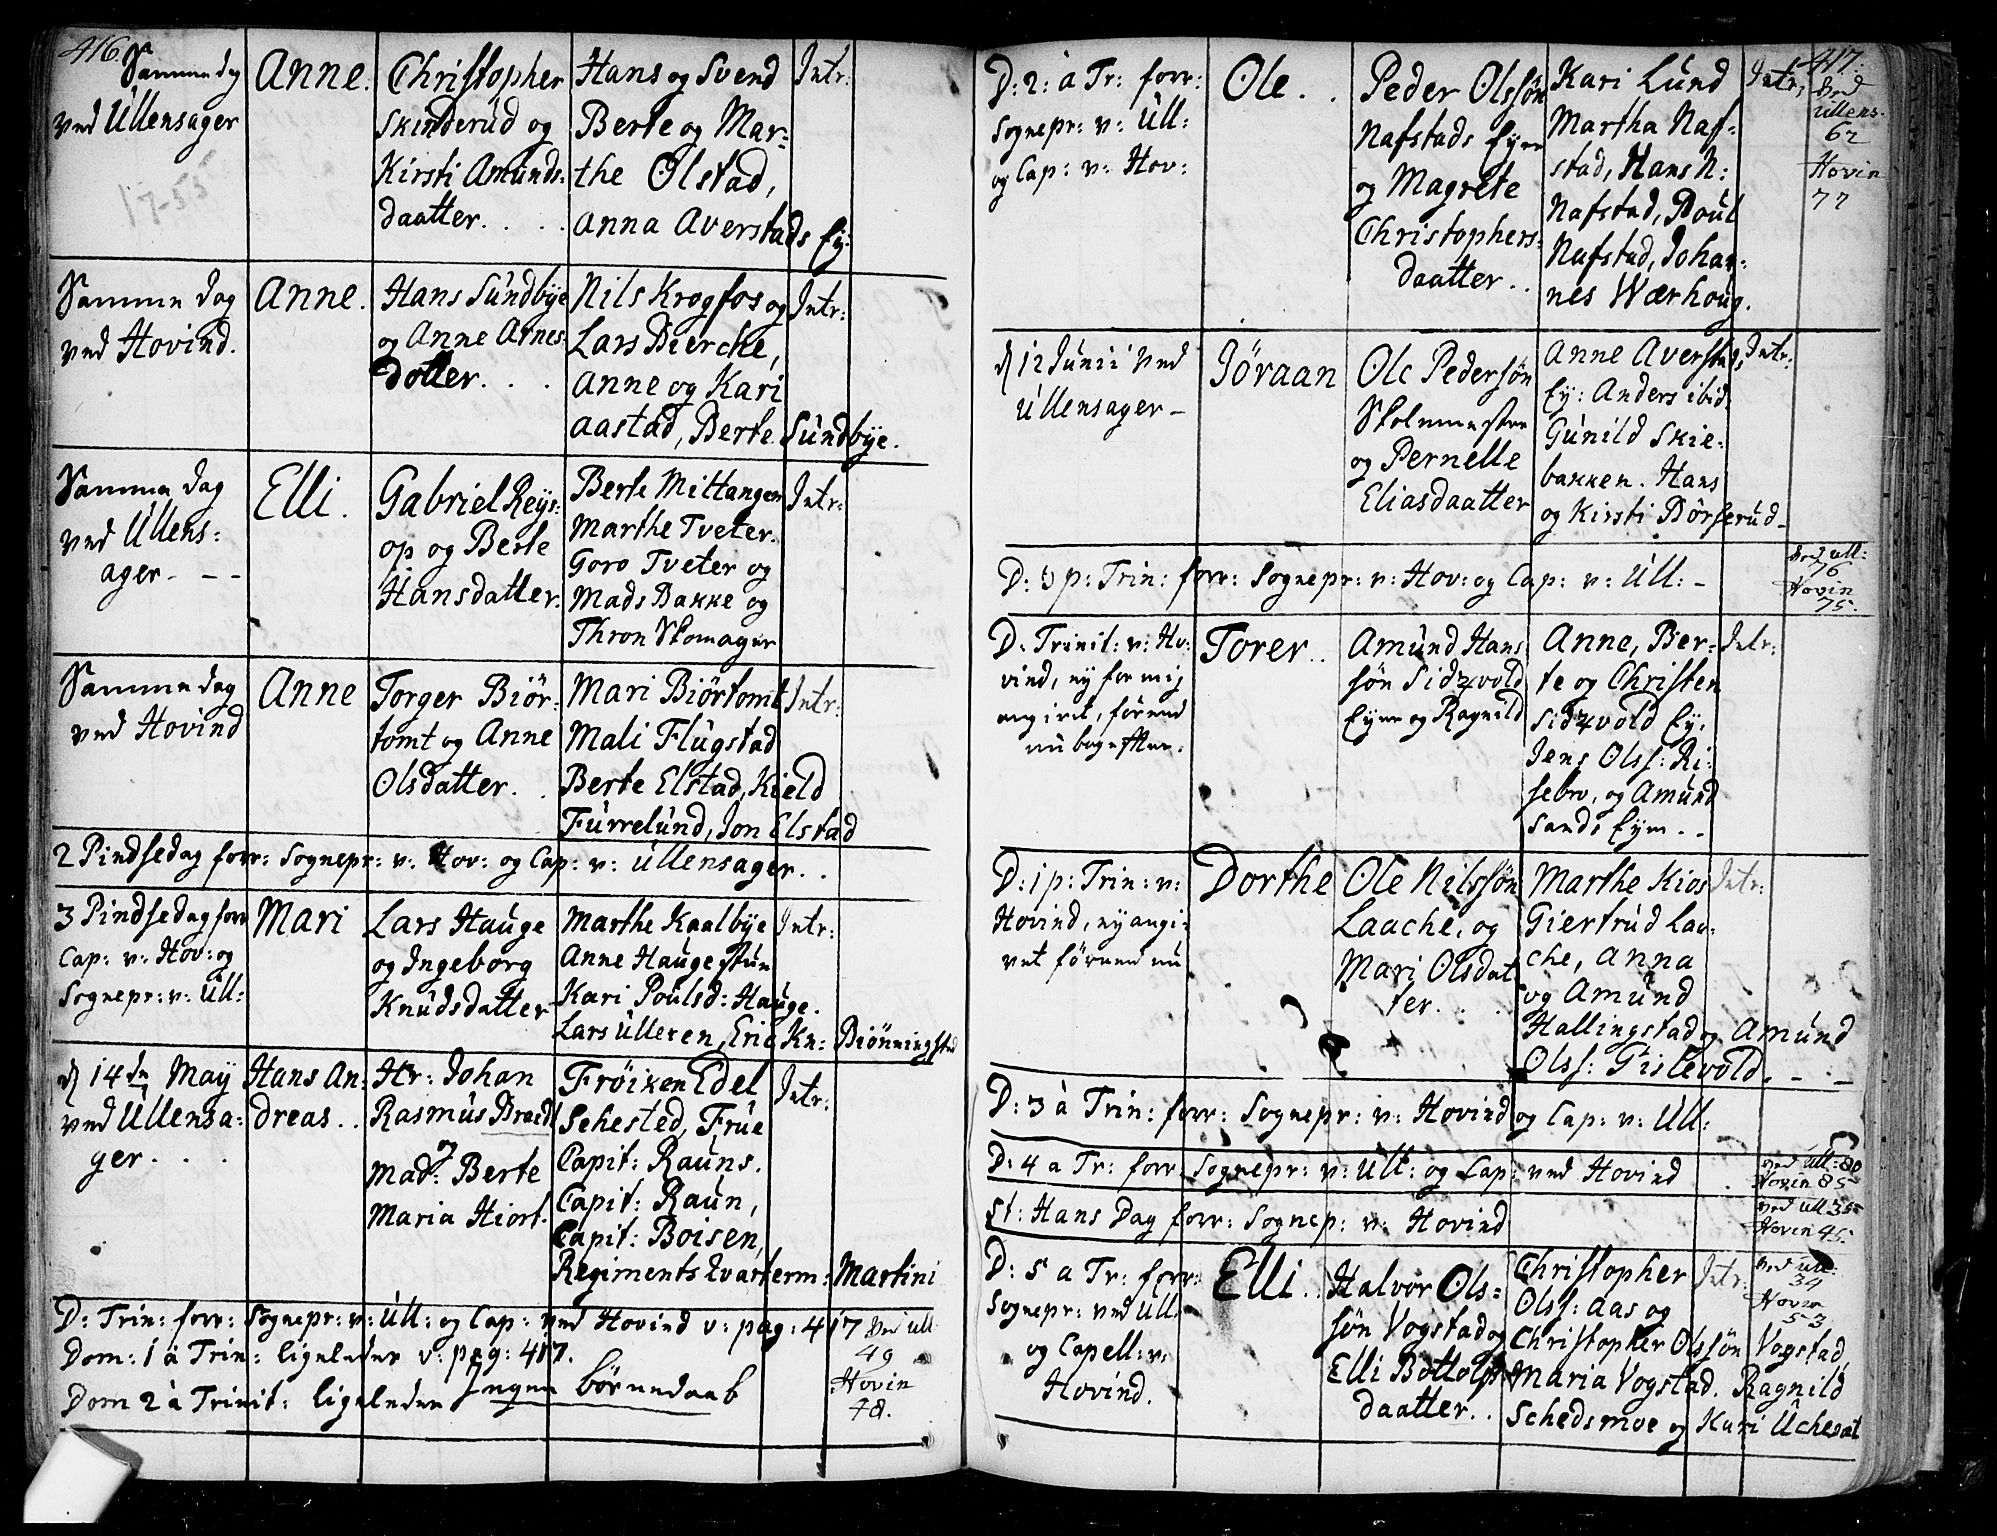 416.
Samme dag
ved Ullensager
17-55
Anne.
Christopher
Skinderud og
Kirsti Amunds-
daatter. . .
Hans og Svend
Berte og Mar-
the Olstad,
Anna Averstads Ey:
Intr:
Samme dag
ved Hovind.
Anne.
Hans Sundbye
og Anne Arnes
dotter. . .
Nils Krogfos og
Lars Bierche,
Anne og Kari
Aastad, Berte Sundbye.
Intr:
Samme dag
ved Ullens:
ager - - -
Elli.
Gabriel Reys:
op og Berte
Hansdatter.
Berte Mittangen
Marthe Tveter.
Goro Tveter og
Mads Bakke og
Thron Skomager
Intr:
Samme dag
ved Hovind
Anne
Torger Biør-
tomt og Anne
Olsdatter. .
Mari Biørtomt
Mali Flugstad
Berte Elstad, Kield
Furrelund, Jon Elstad
Intr:
2 Pindsedag forr: Sognepr: v: Hov: og Cap: v: Ullensager. .
3 Pindsedag forr
Cap: v: Hov: og
Sognepr: v: Ull:
Mari
Lars Hauge
og Ingeborg
Knudsdatter
Marthe Kaalbye
Anne Haugestun
Kari Poulsd: Hauge.
Lars Ulleren, Eric Kn: Biønningstad
Intr:
d 14de May
ved Ullensa:
ger. . .
Hans An-
dreas. .
Hr: Johan
Rasmus Brædt
og
Mad: Berte
Maria Hiort.
Frøiken Edel
Sehested, Frue
Capit: Rauns.
Capit: Raun,
Capit: Boisen,
Regiments Qvarterm: Martini
Intr:
D: Trin: forr: Sognepr: v: Ull: og Cap: ved Hovind v: pag: 417
Dom: 1 à Trin: ligeledes v: pag: 417.
Dom 2 à Trinit: ligeledes Ingen børnedaab
ved Ull
49
Hovin
48.
417.
D: 2: à Tr: forr:
Sognepr: v: Ull:
og Cap: v: Hov:
Ole. .
Peder Olssøn
Nafstads Eyer
og Magrete
Christophers-
daatter. .
Kari Lund
Martha Naf-
stad, Hans N:
Nafstad, Poul
Nafstad, Johan-
nes Wærhoug.
Intr:
ved
Ullens.
62
Hovin
77
d 12 Junii ved
Ullensager -
Jøraan
Ole Pedersøn
Skolemester
og Pernelle
Eliasdaatter
Anne Averstads
Ey: Anders ibid.
Gunild Skie-
bakken. Hans
og Kirsti Børserud-
Intr:
D: 3 p: Trin: forr: Sognepr: v: Hov: og Cap: v: Ull: -
ved Ull:
76
Hovin
75.
D: Trinit: v: Ho-
vind, ey for mig
angivet, førend
nu bagefter.
Torer. .
Amund Hans
søn Sidzvold
Eyer og Ragnild
Anne, Ber-
te og Christen
Sidzvold Ey:
Jens Olss: Ri-
sebro, og Amund
Sands Eyer - -
Intr:
D: 1 p: Trin: v:
Hovind, ey angi-
vet førend nu
Dorthe
Ole Nilssøn
Laache, og
Mari Olsdat
ter. . .
Marthe Kios
Giertrud Laa-
che, Anna
og Amund
Hallingstad og Amund
Olss: Gislevold. - . -
Intr:
D: 3 à Trin: forr: Sognepr: v: Hovind og Cap: v: Ull:
D: 4 a Tr: forr: Sognepr: v: Ull: og Cap: ved Hovind
ved Ull: 80
Hovin 85
St: Hans Dag forr: Sognep: v: Hovind
ved Ull 35
Hovin 45.
D: 5 a Tr: forr:
Sognepr: ved Ull:
og Capell: v:
Hovind.
Elli. .
Halvor Ols-
søn Vogstad og
Elli Bottolfs
daatter. .
Christopher
Olss: Aas og
Christopher Olssøn Vogstad,
Maria Vogstad. Ragnild
Schedsmoe og Kari
Intr:
ved Ull:
34
Hovin
53